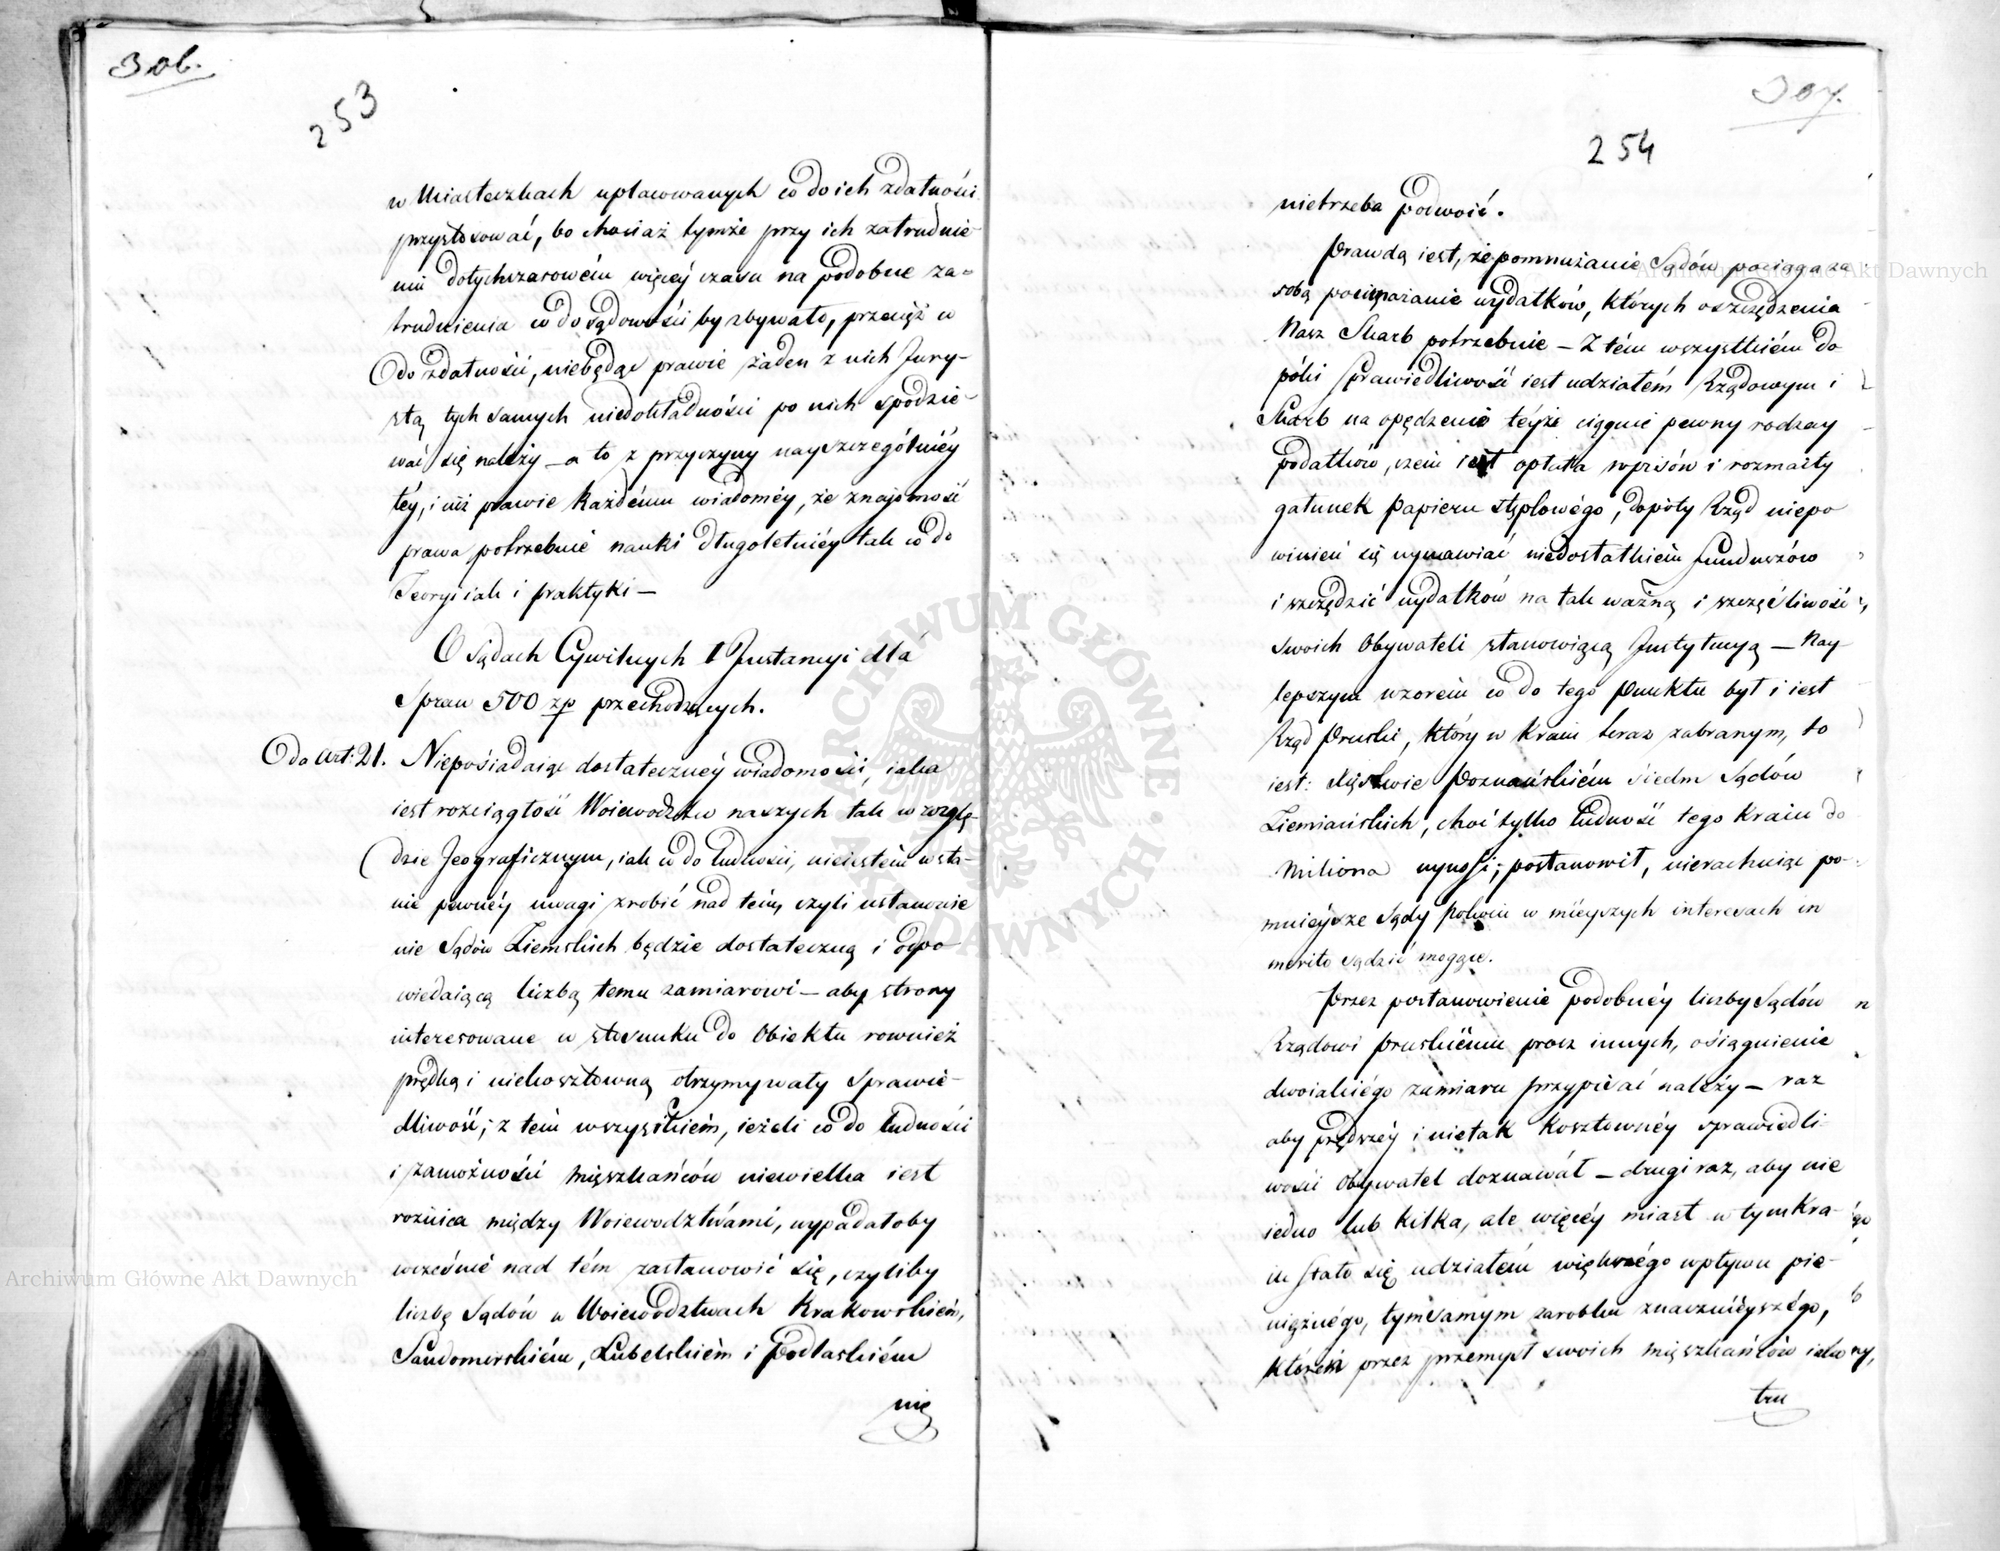 306.
253
w Miasteczkach uplacowanych co do ich zdatności
przystosować, bo chociaż tymże przy ich zatrudnie-
niu dotychczasowém więcéy czasu na podobne za-
trudnienia co do sądowości by zbywało, przecięż w
do zdatności, niebędąc prawie żaden z nich Jury-
stą tych samych niedokładności po nich spodzie-
wać się należy – a to z przyczyny nayszczególniéy
téy, iuż prawie każdému wiadoméy, że znajomość
prawa potrzebuie nauki długoletniéy tak co do
Teoryi iak i praktyki –
O Sądach Cywilnych I Instancyi dla
Spraw 500 zp przechodzących.
do Art: 21. Nieposiadaiąc dostatecznéy wiadomości, iaka
iest rozciągłość Woiewodztw naszych tak w wzglę-
dzie Jeograficznym, iak co do ludności, nieiestém w sta-
nie pewnéy uwagi zrobić nad tém, czyli ustanowie
nie Sądów Ziemskich będzie dostateczną i odpo
wiedaiącą liczbą temu zamiarowi – aby strony
interesowane w stosunku do Obiektu rownież
prędką i niekosztowną otrzymywały Sprawie-
dliwość; z tém wszystkiém, ieżeli co do ludności
i zamożności mięszkańców niewielka iest
roźnica między Woiewodztwami, wypadałoby
wcześnié nad tém zastanowić się, czyliby
liczbę Sądów w Woiewództwach Krakowskiém,
Sandomirskiém, Lubelskiém i Podlaskiém
nie
307.
254
nietrzeba podwoić.
Prawdą iest, że pomnażanie Sądów pociąga za
sobą pomnażanie wydatków, których oszczędzenia
Nasz Skarb potrzebuie – Z tém wszystkiém do
póki Sprawiedliwość iest udziałém Rządowym i
Skarb na opędzenie téyże ciągnie pewny rodzay
podatków, czem iest opłata wpisów i rozmaity
gatunek papieru stęplowégo, dopóty Rząd niepo
winień się wymawiać niedostatkiém funduszów
i szczędzić wydatków na tak ważną i szczęśliwość
swoich Obywateli stanowiącą Instytucyą – Nay-
lepszym wzorém co do tego punktu był i iest
Rząd Pruski, który w Kraiu teraz zabranym, to
iest: Xięstwie Poznańskiém siedm Sądów
Ziemiańskich, choć tylko ludność tego Kraiu do
Miliona wynosi; postanowił, nierachuiąc po-
mnieysze Sądy pokoiu w mieyszych interesach in
merito sądzić mogące.
Przez postanowienie podobnéy liczby Sądów
Rządowi pruskiému procz innych, osiągnienie
dwoiakiégo zamiaru przypisać należy – raz
aby prędszéy i nietak kosztownéy sprawiedli-
wości Obywatel doznawał – drugi raz, aby nie
iedno lub kilka, ale więcéy miast w tym Kra-
iu stało się udziałém większégo wpływu pie-
niężnégo, tymsamym zarobku znaczniéyszégo,
którém przez przemysł swoich mięszkańców iako
tru
Archiwum Główne Akt Dawnych
Archiwum Główne Akt Dawnych
ARCHIWUM GŁÓWNE AKT DAWNYCH